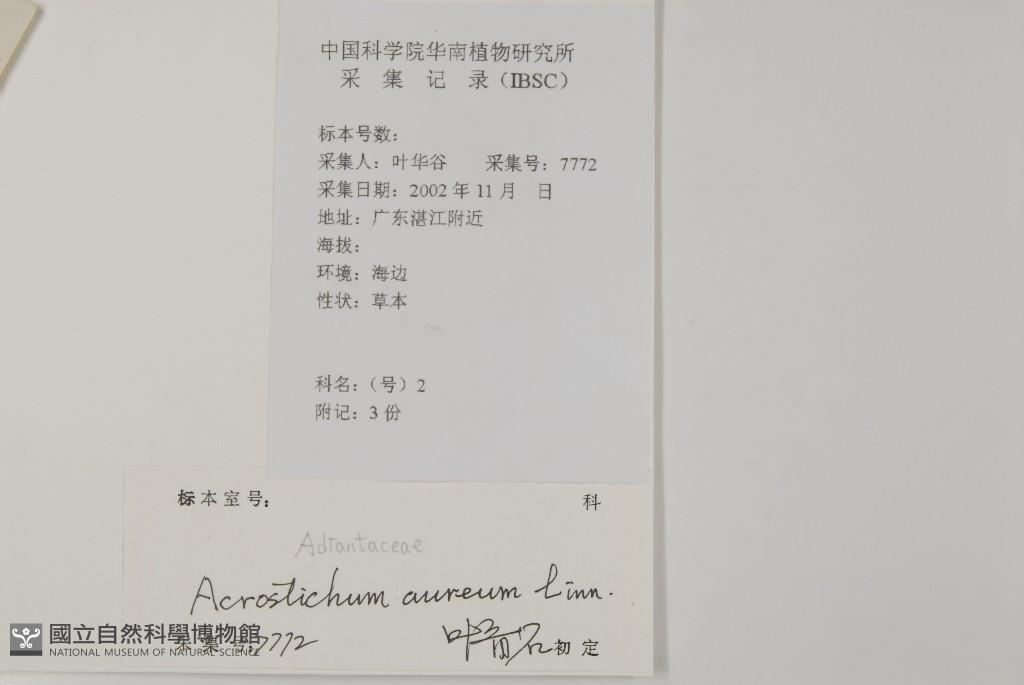 中国科学院华南植物研究所
采 集 记 录（IBSC）
标本号数：
采集人：叶华谷 采集号：7772
采集日期：2002 年 11 月 日
地址：广东湛江附近
海拔：
环境：海边
性状：草本
科名：（号）2
附记：3 份
标本室号： 科
Adiantaceae
Acrostichum aureum Linn.
采集号：7772 初定
國立自然科學博物館
NATIONAL MUSEUM OF NATURAL SCIENCE